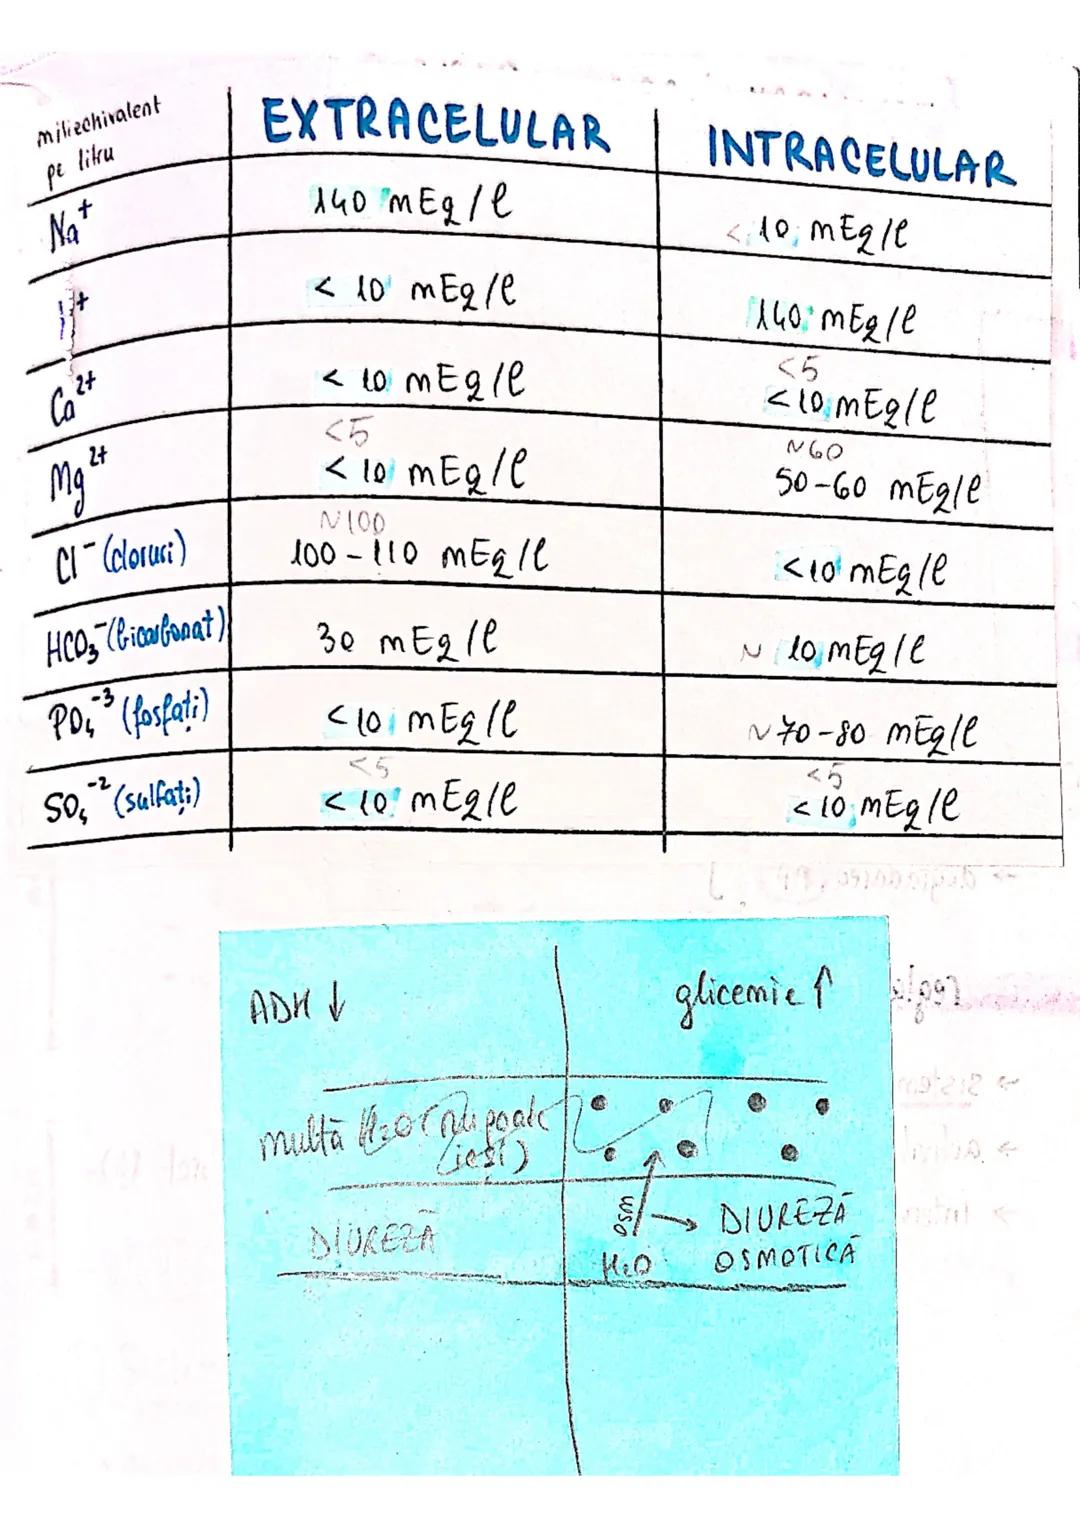 miliechivalent
pe litru
EXTRACELULAR
INTRACELULAR
Na⁺
140 mEq/l
< 10 mEq/l
< 10 mEq/l
140 mEq/l
Ca²⁺
< 10 mEq/l
<5
<10 mEq/l
Mg²⁺
<5
< 10 mEq/l
~60
50-60 mEq/l
Cl⁻ (cloruri)
~100
100-110 mEq/l
<10 mEq/l
HCO₃⁻ (bicarbonat)
30 mEq/l
~ 10 mEq/l
PO₄⁻³ (fosfați)
<10 mEq/l
~70-80 mEq/l
SO₄⁻² (sulfați)
<5
< 10 mEq/l
<5
< 10 mEq/l
ADH ↓
glicemie ↑
multă H₂O (nu poate
ieși)
DIUREZĂ
osm
H₂O
→ DIUREZĂ
OSMOTICĂ